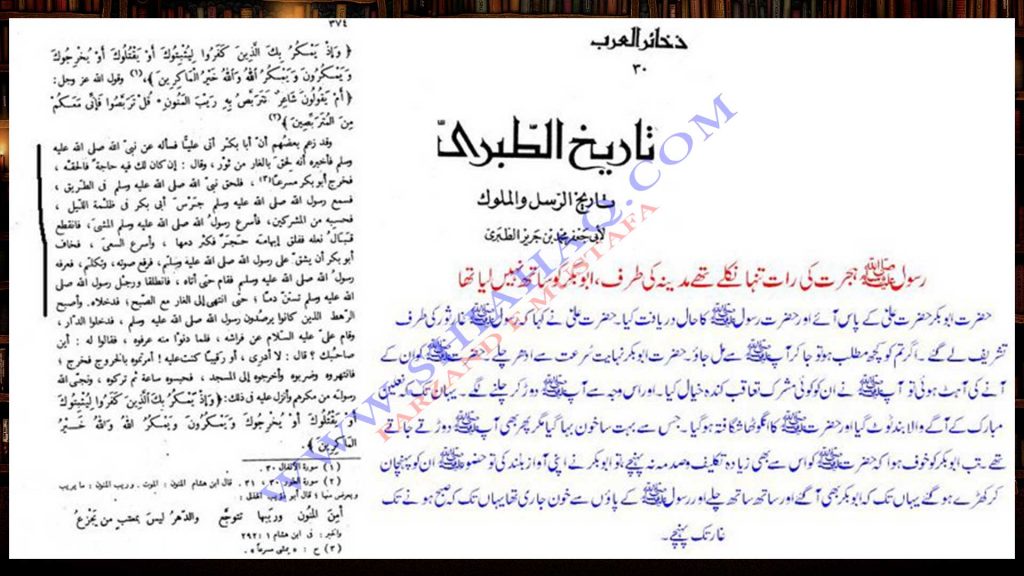 ٣٧٤
﴿ وَإِذْ يَمْكُرُ بِكَ الَّذِينَ كَفَرُوا لِيُثْبِتُوكَ أَوْ يَقْتُلُوكَ أَوْ يُخْرِجُوكَ
وَيَمْكُرُونَ وَيَمْكُرُ اللهُ وَاللهُ خَيْرُ الْمَاكِرِينَ ﴾،(١) وقول الله عز وجل:
﴿ أَمْ يَقُولُونَ شَاعِرٌ نَتَرَبَّصُ بِهِ رَيْبَ الْمَنُونِ * قُلْ تَرَبَّصُوا فَإِنِّى مَعَكُمْ
مِنَ الْمُتَرَبِّصِينَ ﴾(٢)
وقد زعم بعضُهم أنّ أبا بكر أتى عليًّا فسأله عن نبىّ الله صلى الله عليه
وسلم فأخبره أنه لحق بالغار من ثَوْر ، وقال : إن كان لك فيه حاجة فالحقْه ،
فخرج أبو بكر مسرعًا(٣) ، فلحق نبىّ الله صلى الله عليه وسلم فى الطريق ،
فسمع رسول الله صلى الله عليه وسلم جَرْس أبى بكر فى ظلمة الليل ،
فحسبه من المشركين، فأسرع رسولُ الله صلى الله عليه وسلم المشى، فانقطع
قِبَال نعله ففلق إبهامَه حجرٌ فكثر دمها ، وأسرع السعى ، فخاف
أبو بكر أن يشقّ على رسول الله صلى الله عليه وسلم، فرفع صوته، وتكلّم، فعرفه
رسولُ الله صلى الله عليه وسلم فقام حتى أتاه ، فانطلقا ورجل رسول الله صلى
الله عليه وسلم تستنّ دمًا ؛ حتى انتهى إلى الغار مع الصبح ؛ فدخلاه. وأصبح
الرهط الذين كانوا يرصُدون رسول الله صلى الله عليه وسلم ، فدخلوا الدار ،
وقام علىّ عليه السلام عن فراشه ، فلما دنوْا منه عرفوه ، فقالوا له : أين
صاحبك ؟ قال : لا أدرى ، أو رقيبًا كنت عليه ! أمرتموه بالخروج فخرج ؛
فانتهروه وضربوه وأخرجوه إلى المسجد ، فحبسوه ساعة ثم تركوه ، ونجّى الله
رسوله من مكرهم وأنزل عليه فى ذلك : ﴿ وَإِذْ يَمْكُرُ بِكَ الَّذِينَ كَفَرُوا لِيُثْبِتُوكَ
أَوْ يَقْتُلُوكَ أَوْ يُخْرِجُوكَ وَيَمْكُرُونَ وَيَمْكُرُ اللهُ وَاللهُ خَيْرُ
الْمَاكِرِينَ ﴾ .
(١) سورة الأنفال ٣٠ .
(٢) سورة الطور ٣٠ ، ٣١ . قال ابن هشام المنون : الموت . وريب المنون : ما يريب
ويعرض منها ؛ قال أبو ذؤيب الهذلى :
أمن المنون وريبها تتوجّع والدهرُ ليس بمعتب من يَجْزَعُ
والخبر : فى ابن هشام ١ : ٢٩٢
(٣) ح : « يمشى مسرعًا » .
ذخائر العرب
٣٠
تاريخ الطبرىّ
تاريخ الرسل والملوك
لأبى جعفر محمد بن جرير الطبرى
رسول ﷺ ہجرت کی رات تنہا نکلے تھے مدینہ کی طرف، ابو بکر کو ساتھ نہیں لیا تھا
حضرت ابو بکر حضرت علیؓ کے پاس آئے اور حضرت رسول ﷺ کا حال دریافت کیا۔ حضرت علیؓ نے کہا کہ رسول ﷺ غار ثور کی طرف
تشریف لے گئے۔ اگر تم کو کچھ مطلب ہو تو جا کر آپ ﷺ سے مل جاؤ۔ حضرت ابو بکر نہایت سرعت سے ادھر چلے حضرت ﷺ کو ان کے
آنے کی آہٹ ہوئی تو آپ ﷺ نے ان کو کوئی مشرک تعاقب کندہ خیال کیا۔ اور اس وجہ سے آپ ﷺ دوڑ کر چلنے لگے۔ یہاں تک کہ نعلین
مبارک کے آگے والا بند ٹوٹ گیا اور حضرت ﷺ کا انگوٹھا شگافتہ ہو گیا۔ جس سے بہت سا خون بہا گیا مگر پھر بھی آپ ﷺ دوڑتے جاتے
تھے۔ تب ابو بکر کو خوف ہوا کہ حضرت ﷺ کو اس سے بھی زیادہ تکلیف و صدمہ نہ پہنچے، تو ابو بکر نے اپنی آواز بلند کی تو حضور ﷺ ان کو پہچان
کر کھڑے ہو گئے یہاں تک کہ ابو بکر بھی آ گئے اور ساتھ ساتھ چلے اور رسول ﷺ کے پاؤں سے خون جاری تھا یہاں تک کہ صبح ہونے تک
غار تک پہنچے۔
WWW.SHIAHAQ.COM
FARZAND E MUSTAFA